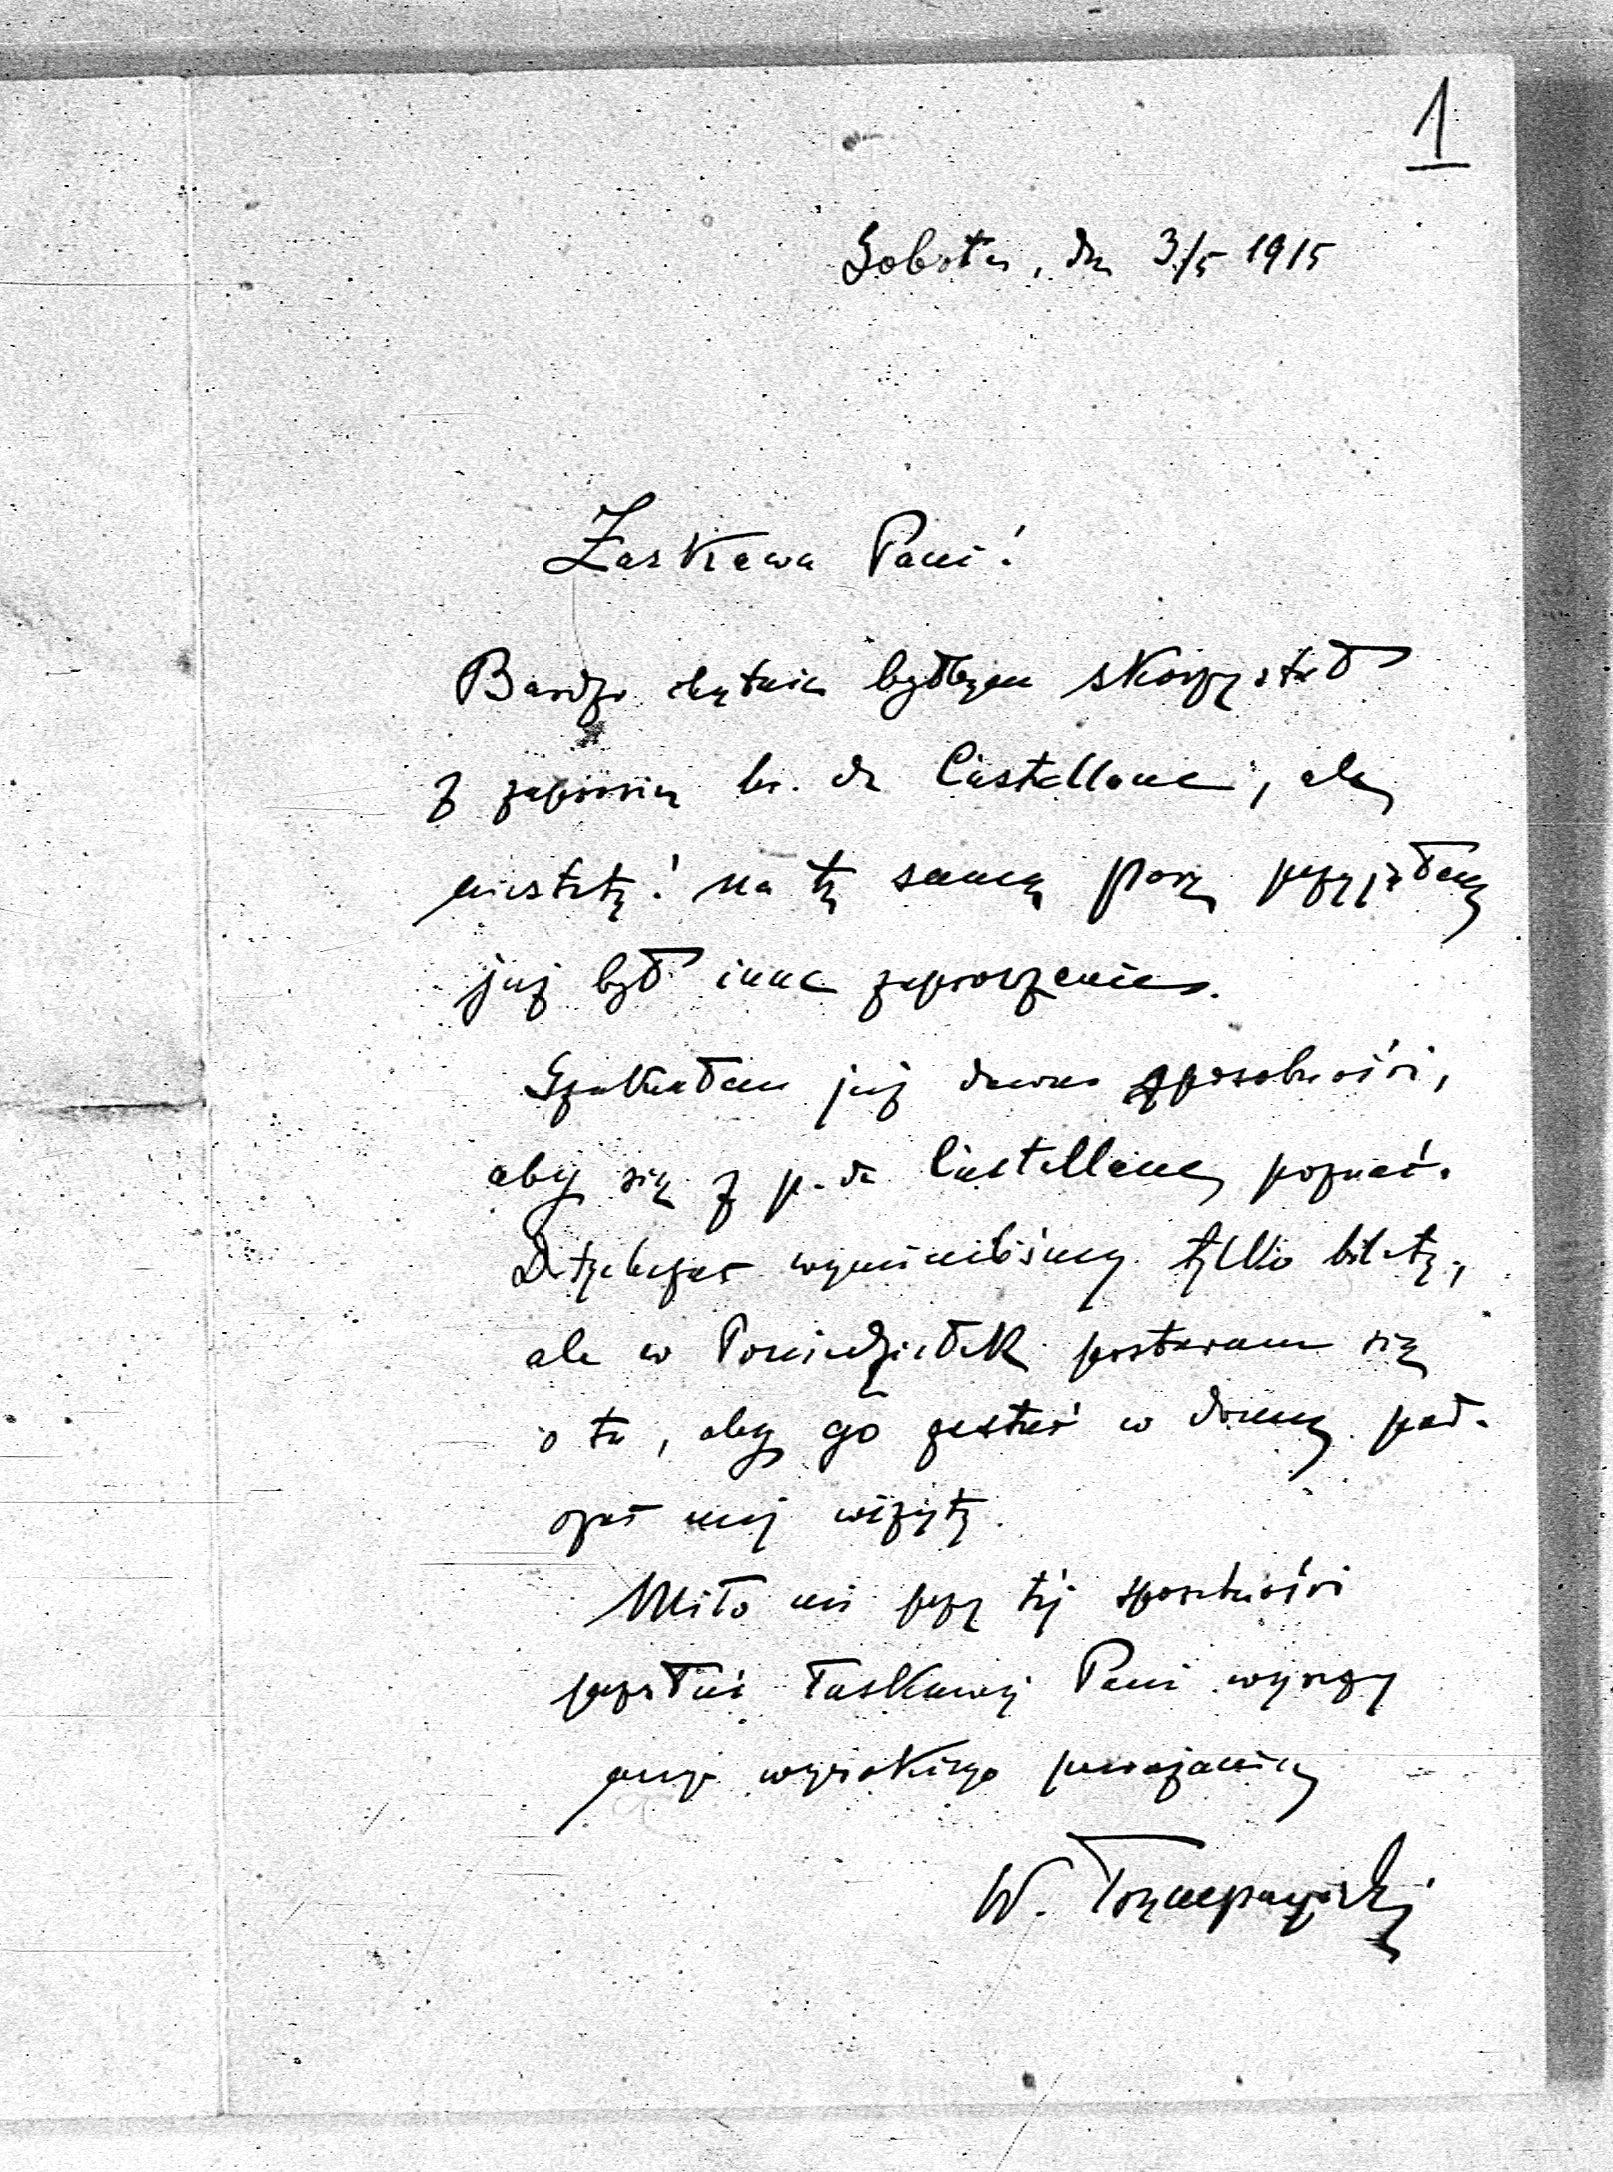 1
Sobota, dn 3/5 1915
Łaskawa Pani!
Bardzo chętnie byłbym skorzystał
z zaprosin hr. de Castellane, ale
niestety! na tę samą porę przyjąłem
już był inne zaproszenie.
Szukałem już dawno sposobności,
aby się z p. de Castellane poznać.
Dotychczas wymieniliśmy tylko bilety,
ale w Poniedziałek postaram się
o to, aby go zastać w domu pod-
czas mej wizyty.
Miło mi przy tej sposobności
przesłać łaskawej Pani wyrazy
mego wysokiego poważania
W.